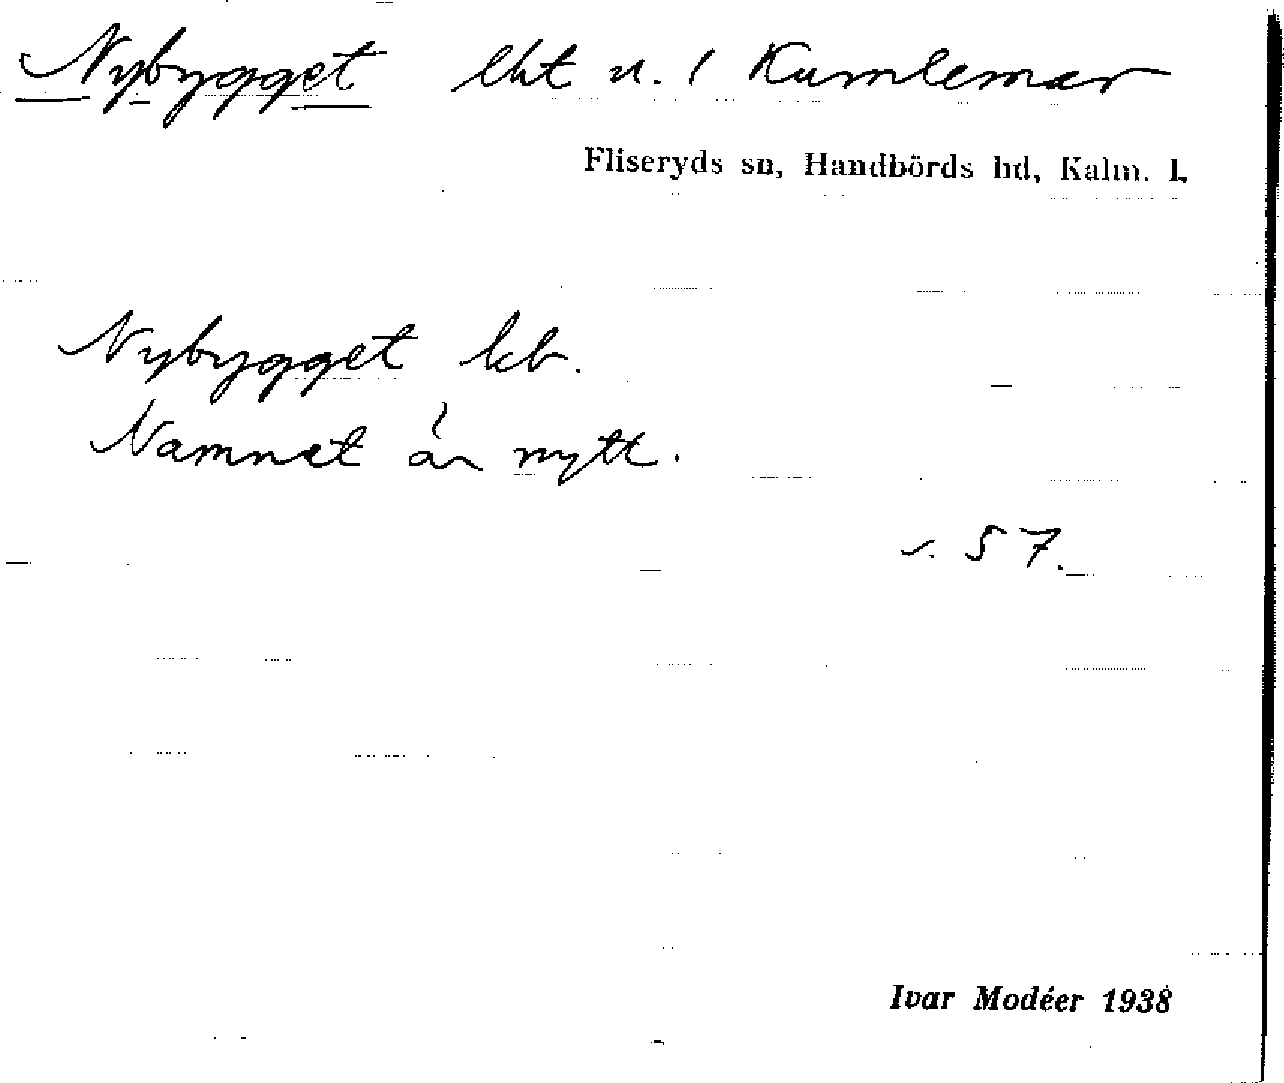 Nybygget lht u. / Kumlemar
Fliseryds sn, Handbörds hd, Kalm. l.
Nybygget kb.
Namnet är nytt.
s. 57.
Ivar Modéer 1938